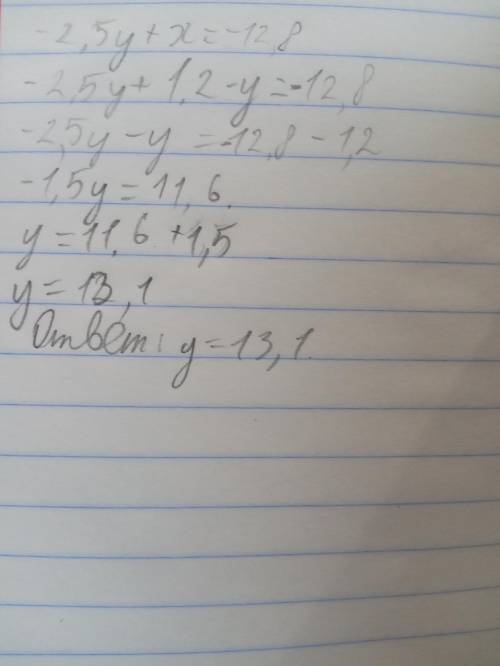 -2,5y+x=-12,8
-2,5y+1,2-y=-12,8
-2,5y-y=-12,8-1,2
-1,5y=11,6.
y=11,6+1,5
y=13,1
Ответ: y=13,1.